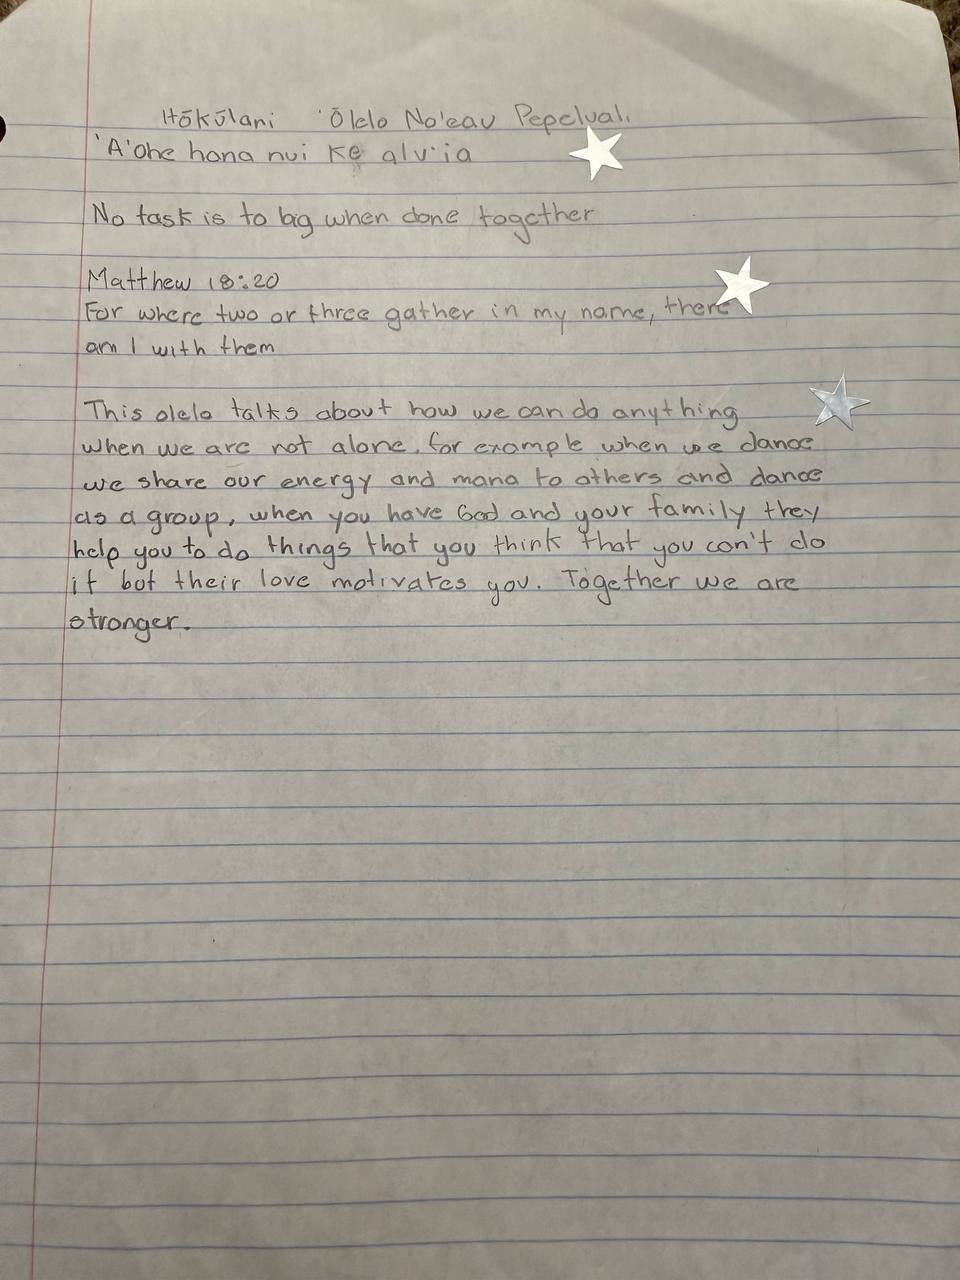 Hōkūlani 'Ōlelo No'eau Pepeluali
'A'ohe hana nui ke alu'ia
No task is to big when done together
Matthew 18:20
For where two or three gather in my name, there
am I with them
This olelo talks about how we can do anything
when we are not alone, for example when we dance
we share our energy and mana to others and dance
as a group, when you have God and your family they
help you to do things that you think that you can't do
it but their love motivates you. Together we are
stronger.